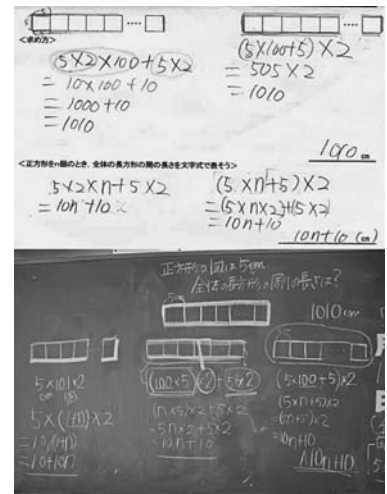 5
5
<求め方>
5×2×100+5×2
= 10×100+10
= 1000+10
= 1010
(5×100+5)×2
= 505×2
= 1010
1010 cm
<正方形をn個のとき、全体の長方形の周の長さを文字式で表そう>
5×2×n+5×2
= 10n+10
(5×n+5)×2
= (5×n×2)+(5×2)
= 10n+10
10n+10 (cm)
正方形の1辺は5cm
全体の長方形の周りの長さは?
5cm
1010cm
5×101×2
5×(1+n)×2
= 10(1+n)
= 10+10n
(100×5)×2+5×2
(n×5)×2+5×2
= 5n×2+5×2
= 10n+10
(5×100+5)×2
(5×n+5)×2
= (5n+5)×2
= 10n+10
A10n+10